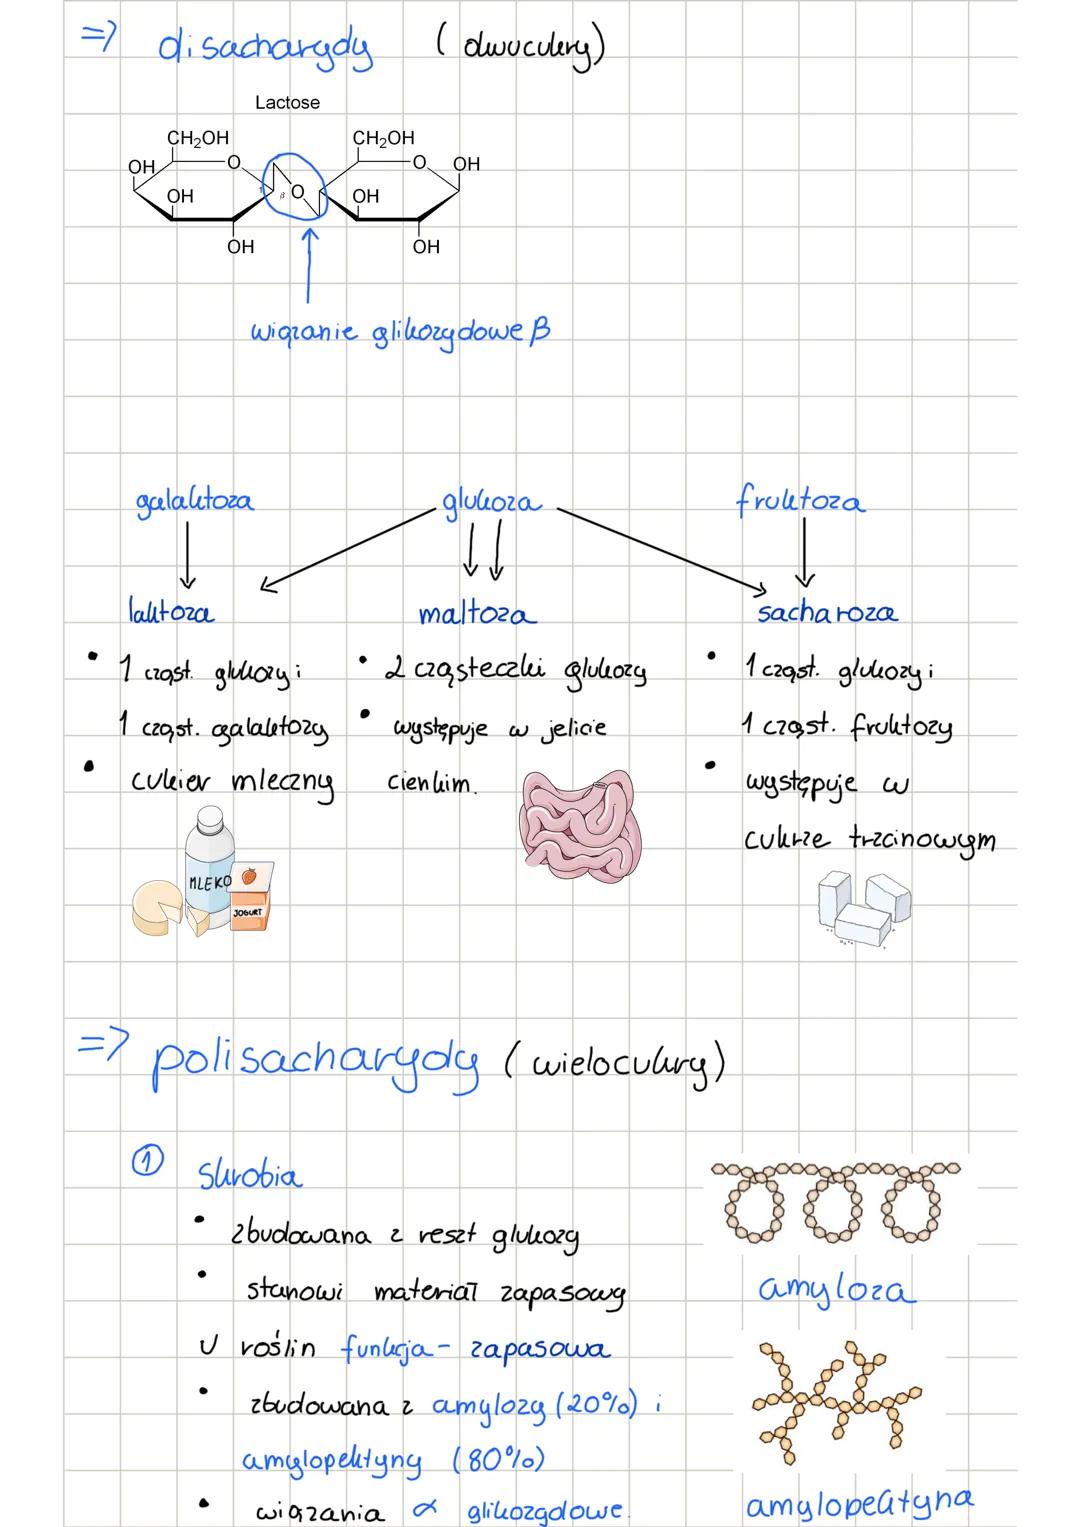 => disacharydy (dwucukry)
Lactose
CH₂OH CH₂OH
OH O O OH
OH 1 β O OH
OH OH
wiązanie glikozydowe β
galaktoza glukoza fruktoza
laktoza maltoza sacharoza
• 1 cząst. glukozy i
1 cząst. galaktozy
• cukier mleczny
MLEKO
JOGURT
• 2 cząsteczki glukozy
• występuje w jelicie
cienkim.
• 1 cząst. glukozy i
1 cząst. fruktozy
• występuje w
cukrze trzcinowym
=> polisacharydy (wielocukry)
① skrobia
• zbudowana z reszt glukozy
• stanowi materiał zapasowy
U roślin funkcja - zapasowa
• zbudowana z amylozy (20%) i
amylopektyny (80%)
• wiązania α glikozydowe.
amyloza
amylopektyna